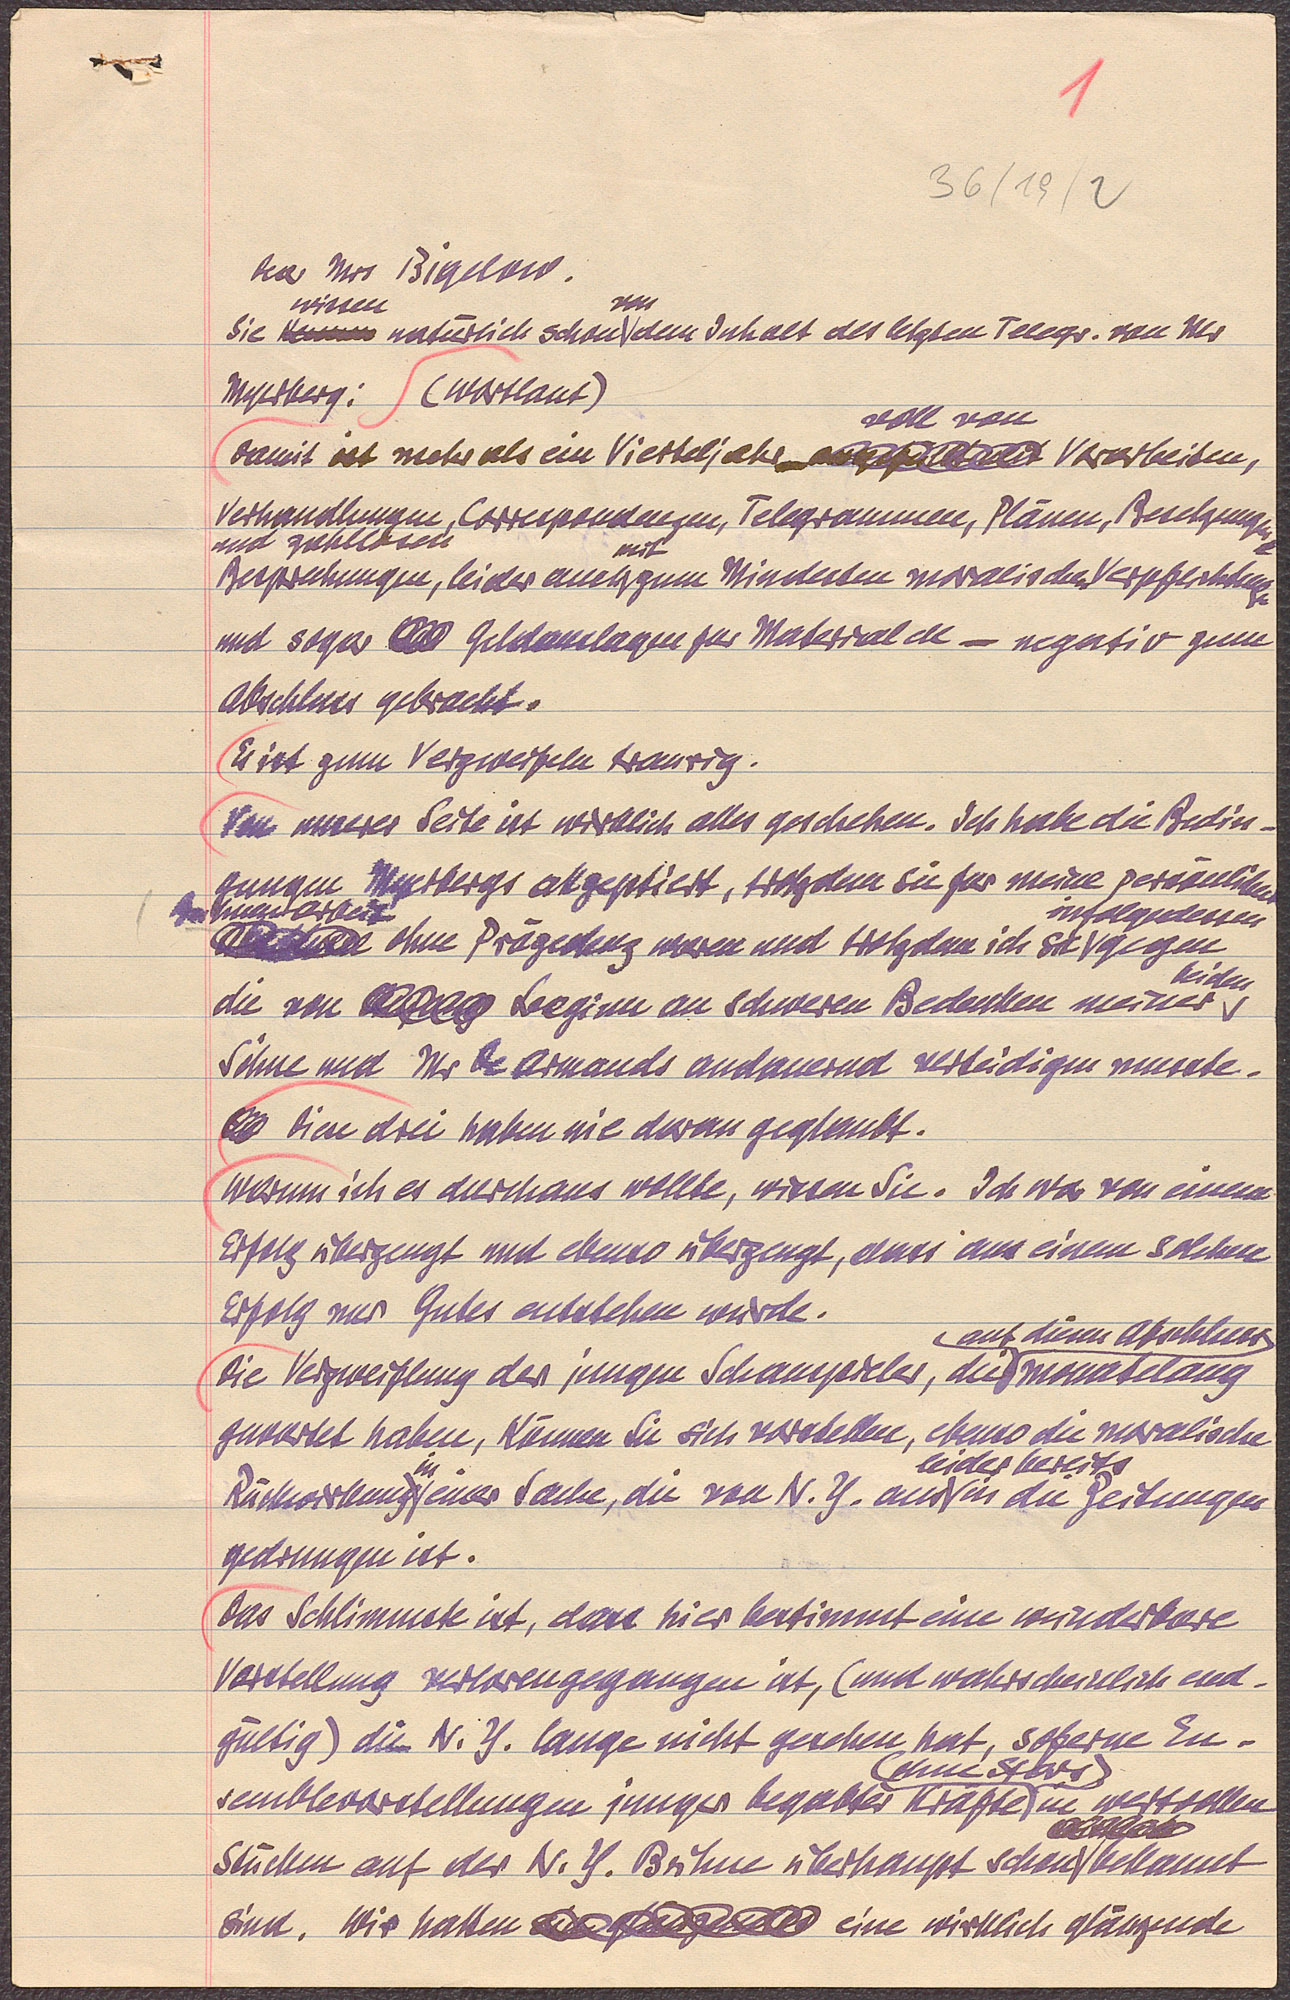 1
36/19/2
Dear Mrs Bigelow.
wissen von
Sie natürlich schon dem Inhalt des letzten Telegr. von Mr
Myerberg: (Wortlaut)
voll von
Damit ist mehr als ein Vierteljahr Vorarbeiten,
Verhandlungen, Correspondenzen, Telegrammen, Plänen, Besetzungen
und zahllosen mit
Besprechungen, leider auch zum Mindesten moralischen Verpflichtungen
und sogar Geldauslagen für Material etc — negativ zum
Abschluss gebracht.
Es ist zum Verzweifeln traurig.
Von unserer Seite ist wirklich alles geschehen. Ich habe die Bedin-
gungen Myerbergs akzeptiert, trotzdem sie für meine persönliche
infolgedessen
ohne Präzedenz waren und trotzdem ich sie gegen
beiden
die von Beginn an schweren Bedenken meiner
Söhne und Mr De Armands andauernd verteidigen musste.
Diese drei haben nie daran geglaubt.
Warum ich es durchaus wollte, wissen Sie. Ich war von einem
Erfolg überzeugt und ebenso überzeugt, dass aus einem solchen
Erfolg nur Gutes entstehen würde.
auf diesen Abschluss
Die Verzweiflung der jungen Schauspieler, die monatelang
gewartet haben, können Sie sich vorstellen, ebenso die moralische
in leider bereits
Rückwirkung einer Sache, die von N.Y. aus in die Zeitungen
gedrungen ist.
Das Schlimmste ist, dass hier bestimmt eine wunderbare
Vorstellung verlorengegangen ist, (und wahrscheinlich end-
gültig) die N.Y. lange nicht gesehen hat, soferne En-
(ohne Stars)
semblevorstellungen junger begabter Kräfte in wertvollen
Stücken auf der N.Y. Bühne überhaupt schon bekannt
sind. Wir hatten eine wirklich glänzende